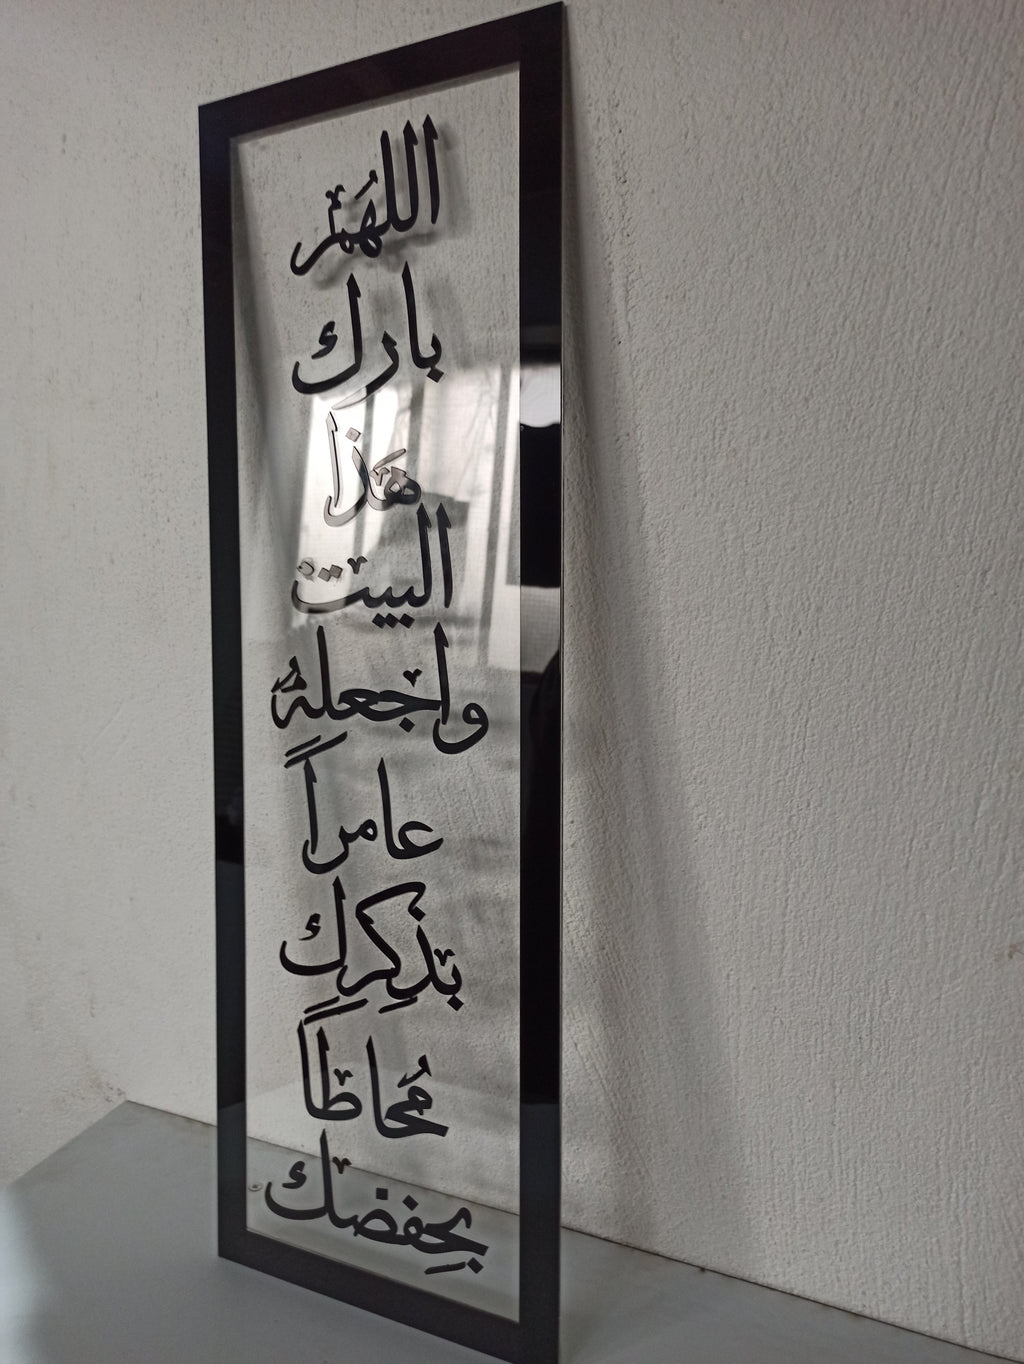 اللهَمْ
بارك
هَذا
البيت
واجعلهُ
عامراً
بذكِرك
مُحاطاً
بحِفضك